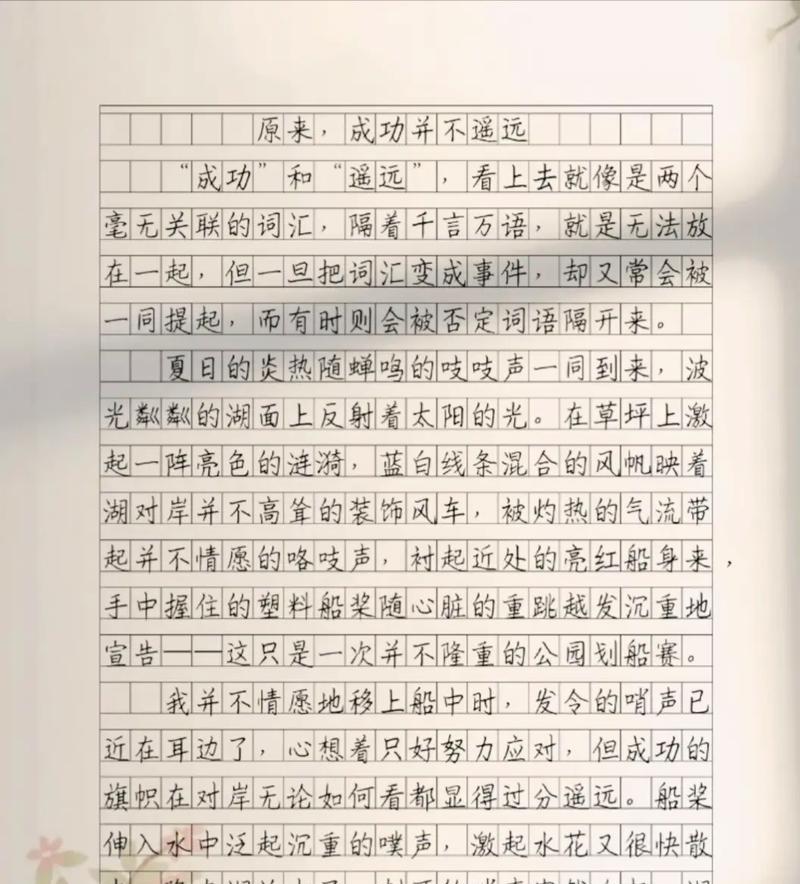 原来，成功并不遥远
“成功”和“遥远”，看上去就像是两个
毫无关联的词汇，隔着千言万语，就是无法放
在一起，但一旦把词汇变成事件，却又常会被
一同提起，而有时则会被否定词语隔开来。
夏日的炎热随蝉鸣的吱吱声一同到来，波
光粼粼的湖面上反射着太阳的光。在草坪上激
起一阵亮色的涟漪，蓝白线条混合的风帆映着
湖对岸并不高耸的装饰风车，被灼热的气流带
起并不情愿的咯吱声，衬起近处的亮红船身来，
手中握住的塑料船桨随心脏的重跳越发沉重地
宣告——这只是一次并不隆重的公园划船赛。
我并不情愿地移上船中时，发令的哨声已
近在耳边了，心想着只好努力应对，但成功的
旗帜在对岸无论如何看都显得过分遥远。船桨
伸入水中泛起沉重的噗声，激起水花又很快散